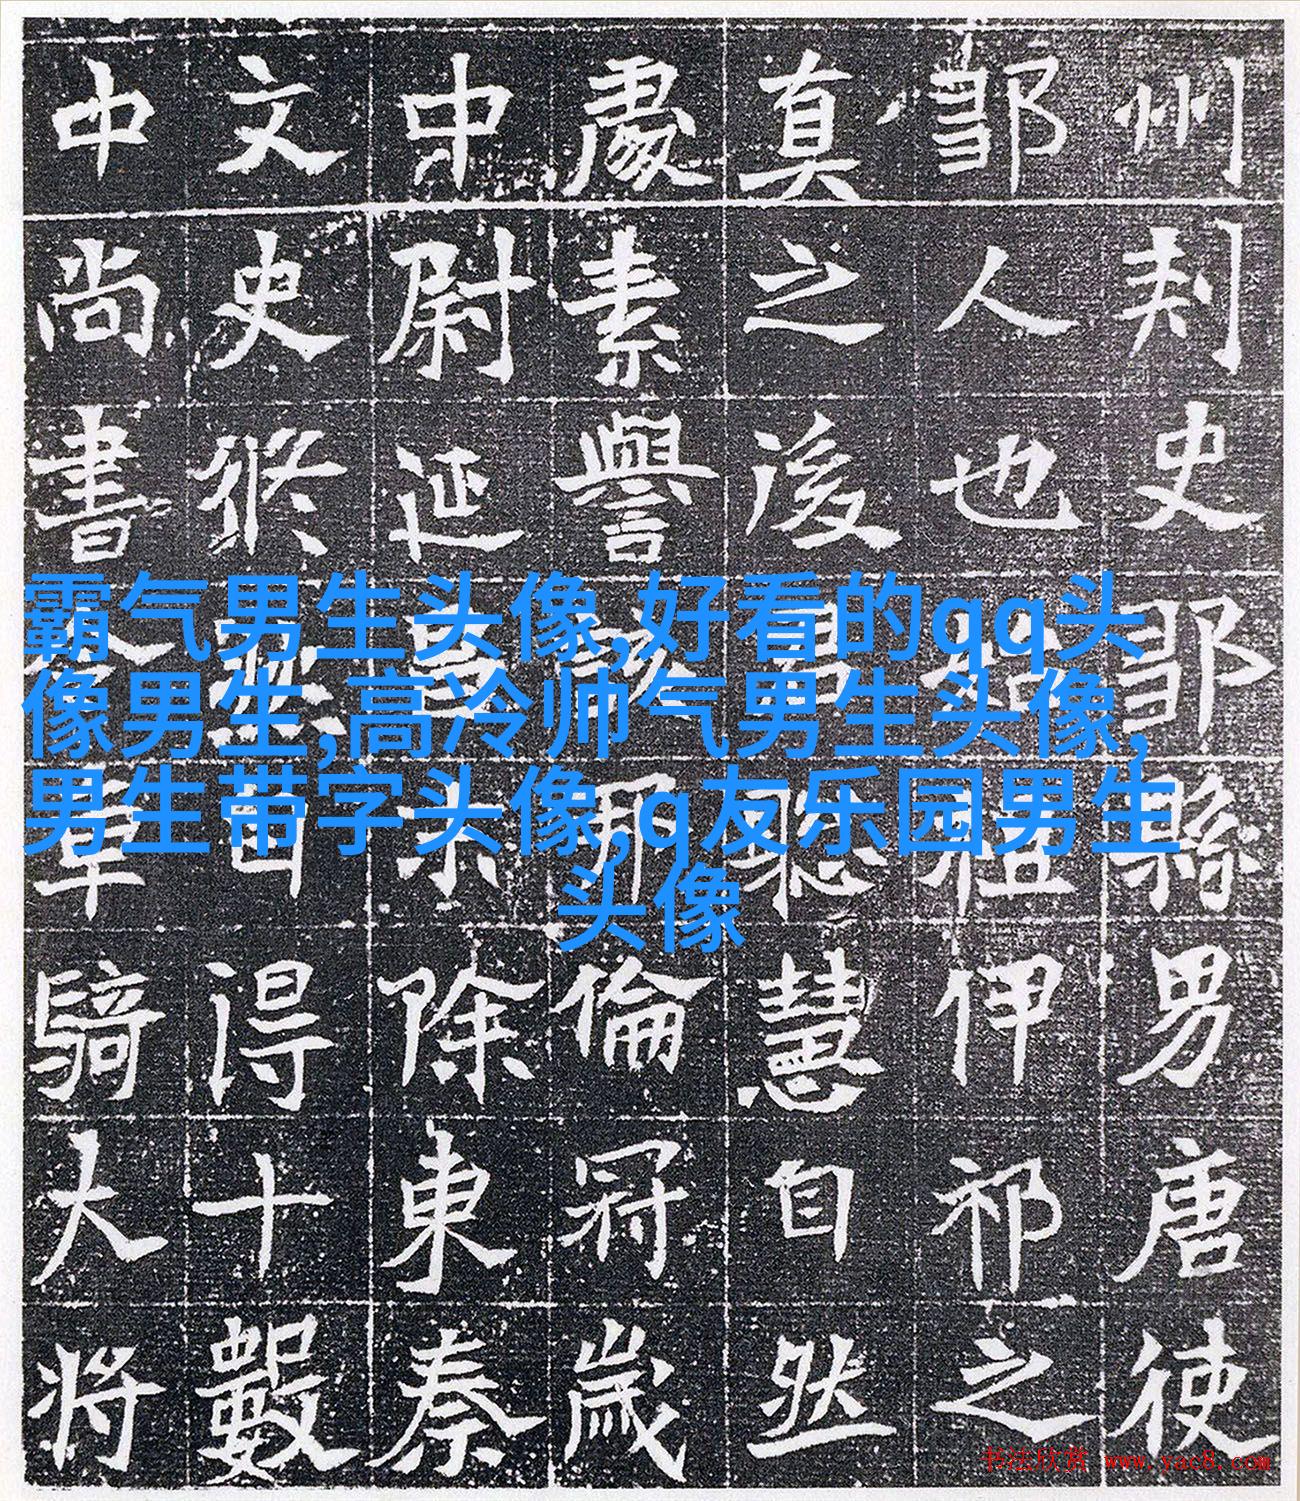 州刺史鄒縣男唐使
鄒人也始祖伊祁之
真之後聡慧自然
處素譽倫冠歲
中尉延末除東秦
文史修無日得十數
中尚書令車騎大將
霸气男生头像,好看的qq头
像男生,高冷帅气男生头像,
男生带字头像,q友乐园男生
头像
书法欣赏 www.yac8.com